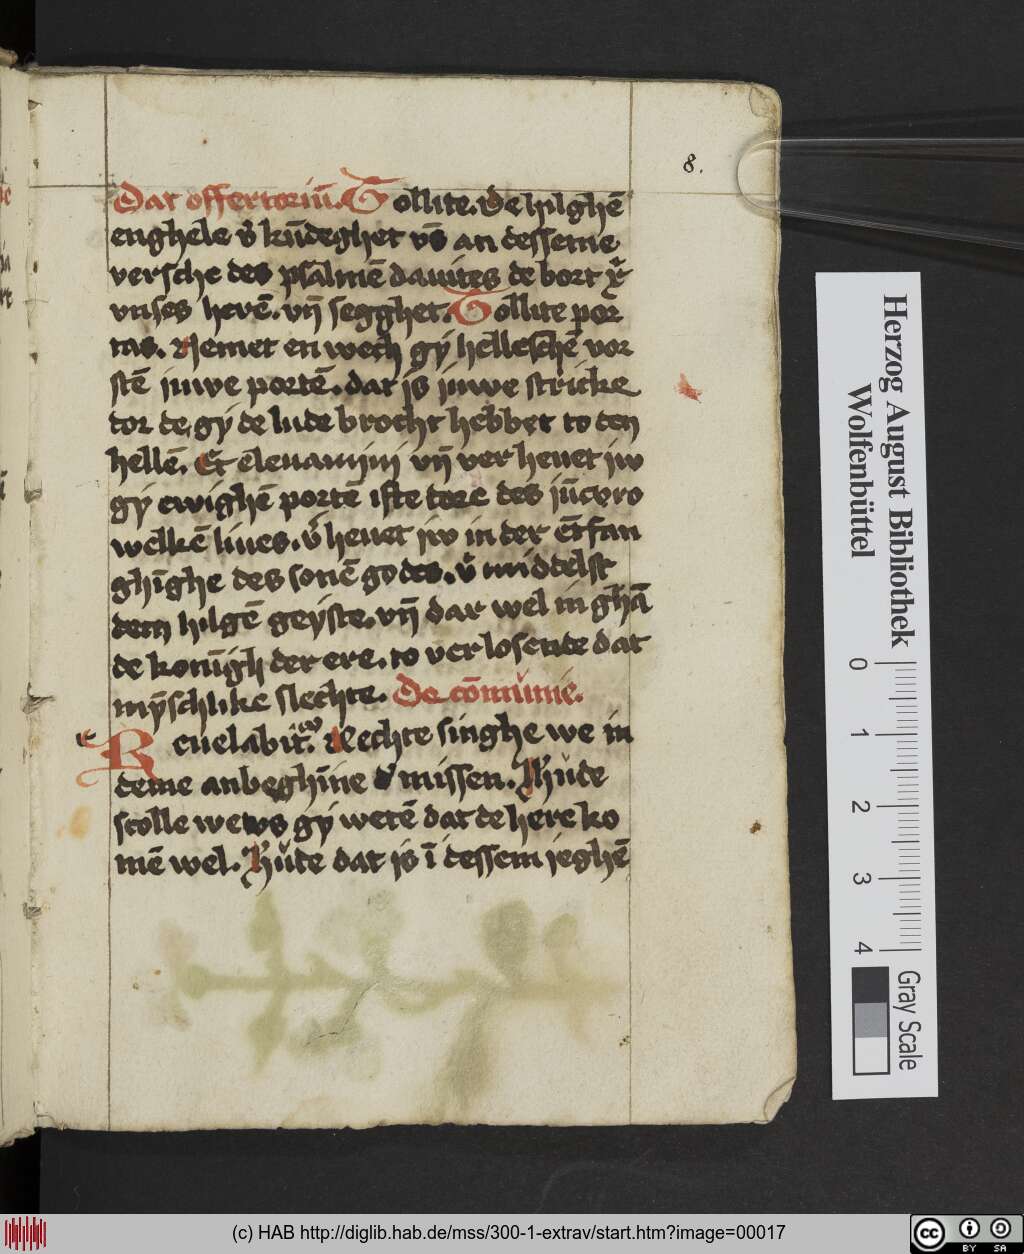 8.
Dat offertoriū. Tollite. De hilghē
enghele v̄ kūdeghet vs̄ an desseme
versche des psalmē dauites de bort xp̄i
vnses herē. vn̄ segghet. Tollite por
tas. Nemet en wech gy helleschē vor
stē juwe portē. dat is juwe stricke
tor de gy de lude brocht hebbet to den
hellē. Et eleuamini vn̄ vor heuet jw
gy ewighē portē iste tore des jūcvro
welkē liues. v̓heuet jw in der ētfan
ghīghe des sonē godes. v̓middelst
dem hilgē geyste. vn̄ dar wel in ghā
de konīgh der ere. to vorlosende dat
mȳschlike slechte. De cōmunie.
Reuelabit͛. Rechte singhe we in
deme anbeghīne d̓ missen. Hude
scolle we gy wetē dat de here ko
mē wel. Hude dat is ī dessem jeghē
Herzog August Bibliothek
Wolfenbüttel
0 1 2 3 4
Gray Scale
(c) HAB http://diglib.hab.de/mss/300-1-extrav/start.htm?image=00017
cc BY SA